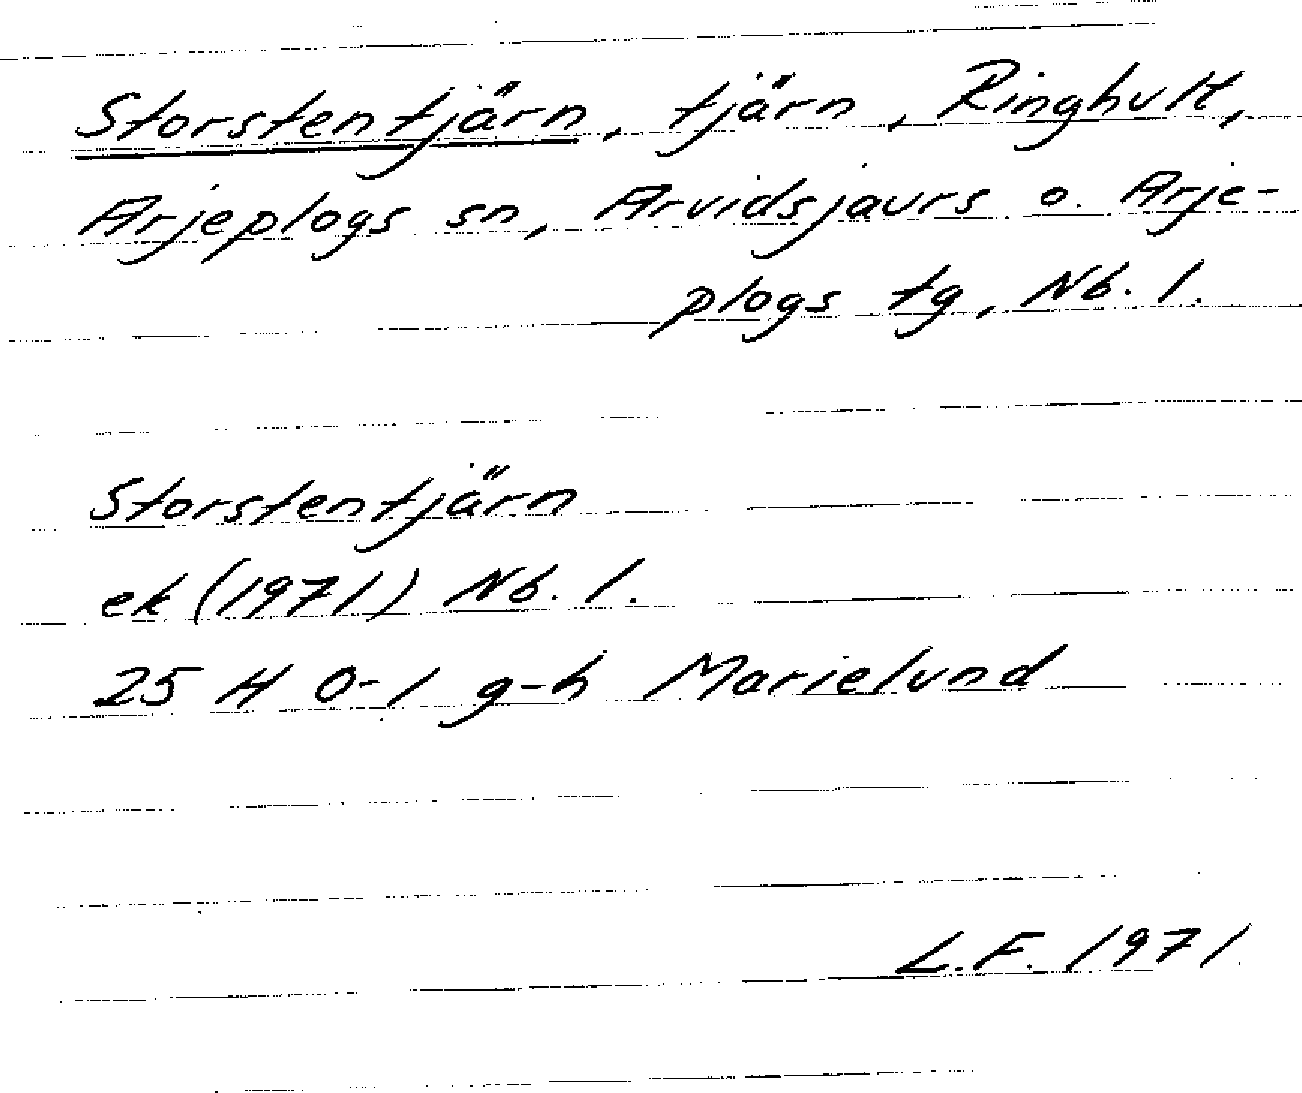 Storstentjärn, tjärn, Ringhult,
Arjeplogs sn, Arvidsjaurs o. Arje-
plogs tg, Nb. l.
Storstentjärn
ek (1971) Nb. l.
25 H 0-1 g-h Marielund
L.F. 1971